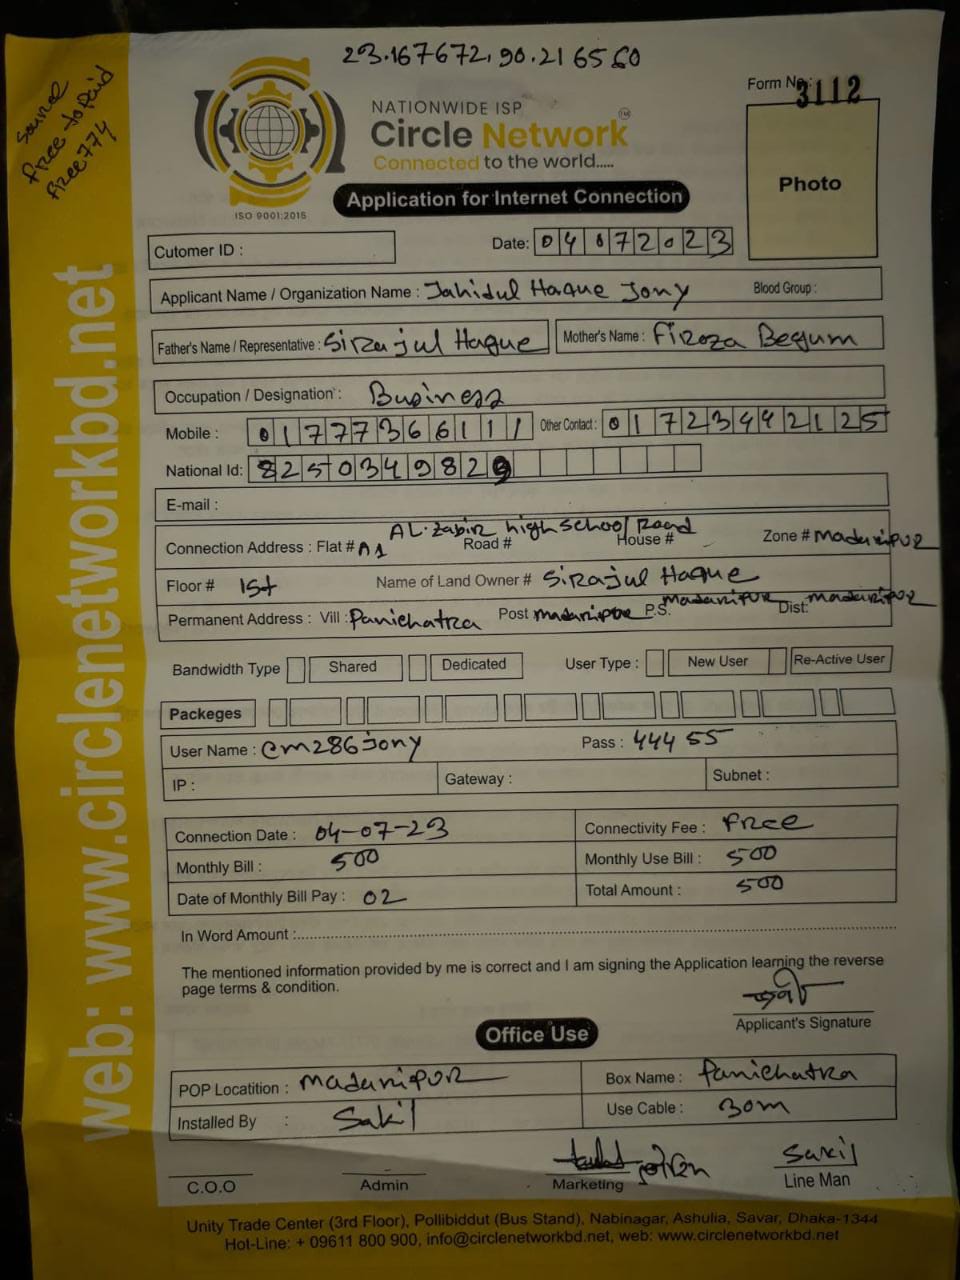 23.167672, 90.216560
Source
free to paid
free774
Form No: 3112
NATIONWIDE ISP
Circle Network TM
Connected to the world.....
ISO 9001:2015
Application for Internet Connection
Photo
Cutomer ID :
Date: 04072023
Applicant Name / Organization Name : Jahidul Haque Jony Blood Group :
Father's Name / Representative : Sirajul Haque Mother's Name : Firoza Begum
Occupation / Designation : Business
Mobile : 01777366111 Other Contact : 01723442125
National Id: 8250349829
E-mail :
AL-Zabir high School Road
Connection Address : Flat # A1 Road # House # Zone # Madaripur
Floor # 1st Name of Land Owner # Sirajul Haque
Permanent Address : Vill : Panichatra Post Madaripur P.S. Madaripur Dist: Madaripur
Bandwidth Type Shared Dedicated User Type : New User Re-Active User
Packeges
User Name : cm286jony Pass : 44455
IP : Gateway : Subnet :
Connection Date : 04-07-23 Connectivity Fee : Free
Monthly Bill : 500 Monthly Use Bill : 500
Date of Monthly Bill Pay : 02 Total Amount : 500
In Word Amount :
The mentioned information provided by me is correct and I am signing the Application learning the reverse
page terms & condition.
Applicant's Signature
Office Use
POP Locatition : Madaripur Box Name : Panichatra
Installed By : Sakil Use Cable : 30m
Sakil
C.O.O Admin Marketing Line Man
Unity Trade Center (3rd Floor), Pollibiddut (Bus Stand), Nabinagar, Ashulia, Savar, Dhaka-1344
Hot-Line: + 09611 800 900, info@circlenetworkbd.net, web: www.circlenetworkbd.net
web: www.circlenetworkbd.net